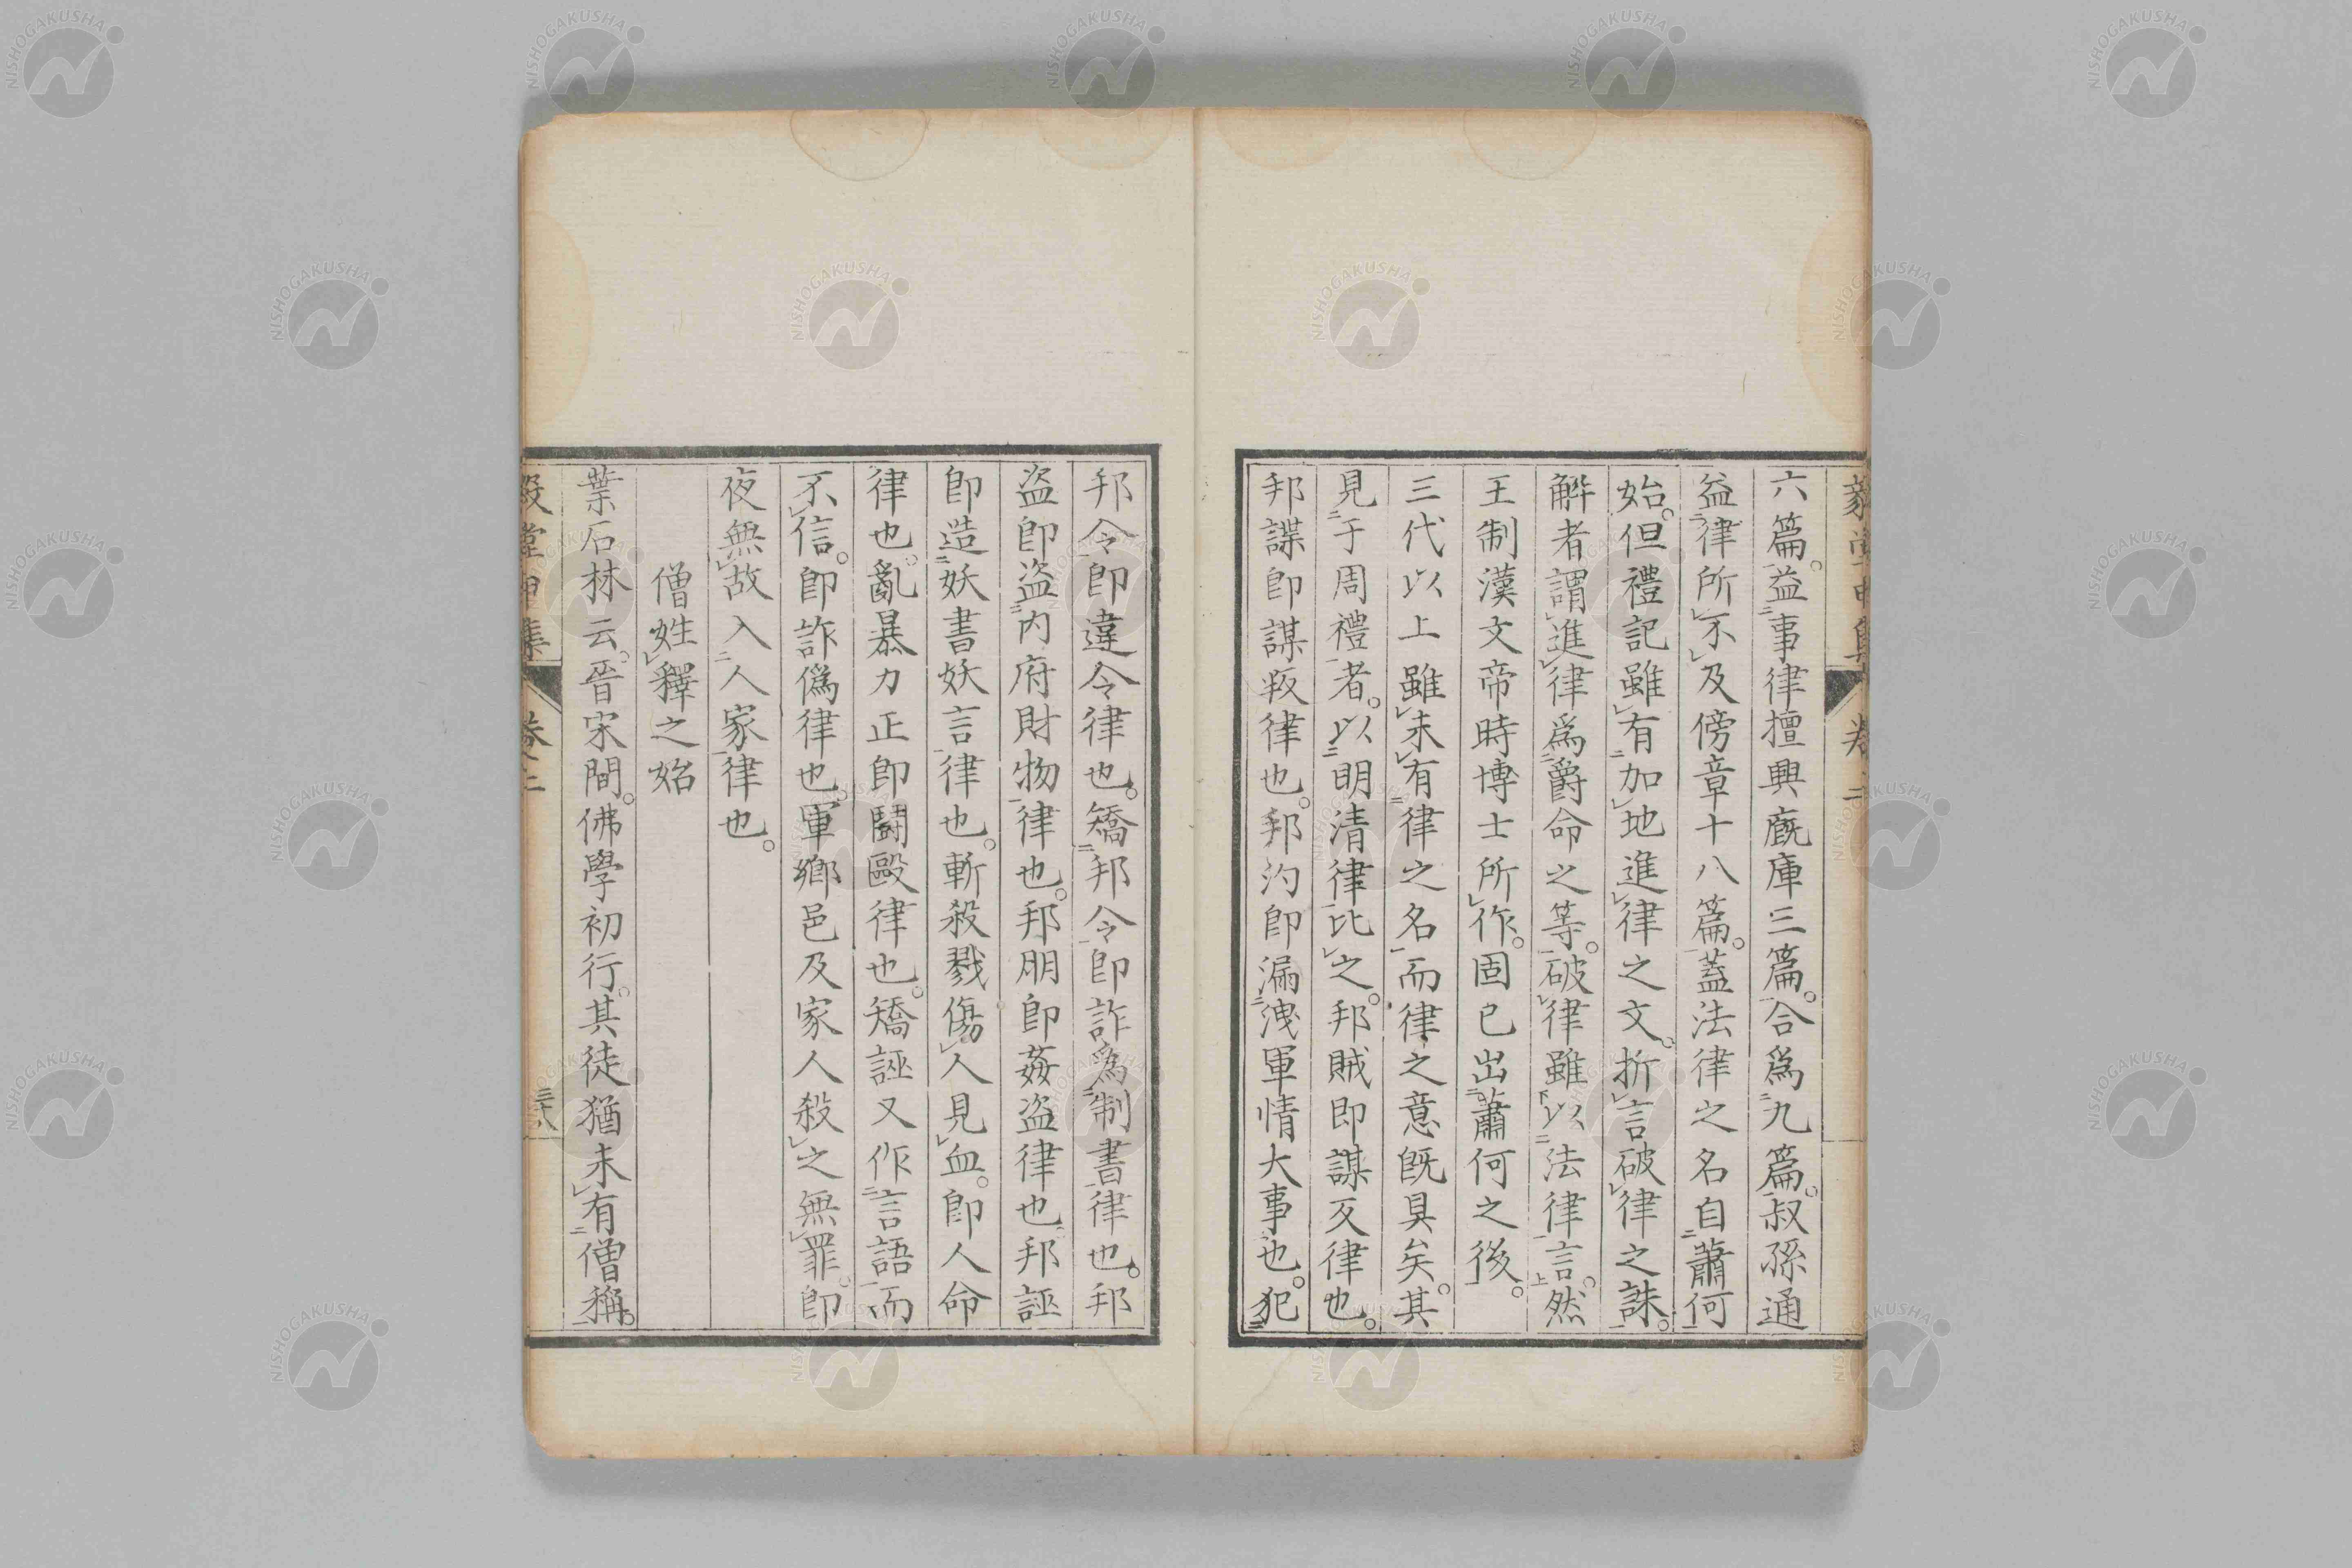 六篇。益事律擅興廐庫三篇。合爲九篇。叔孫通
益律所不及傍章十八篇。蓋法律之名自蕭何
始。但禮記雖有加地進律之文。折言破律之誅。
解者謂進律爲爵命之等。破律雖以法律言。然
王制漢文帝時博士所作。固已出蕭何之後。
三代以上雖未有律之名而律之意既具矣。其
見于周禮者。以明清律比之。邦賊即謀反律也。
邦諜即謀叛律也。邦汋即漏洩軍情大事也。犯
邦令即違令律也。矯邦令即詐爲制書律也。邦
盗即盗内府財物律也。邦朋即姦盗律也。邦誣
即造妖書妖言律也。斬殺戮傷人見血。即人命
律也。亂暴力正即鬪毆律也。矯誣又作言語而
不信。即詐僞律也。軍鄉邑及家人殺之無罪。即
夜無故入人家律也。
僧姓釋之始
葉石林云。晉宋間。佛學初行。其徒猶未有僧稱。
毅堂甲集
卷之二
三十八
NISHOGAKUSHA